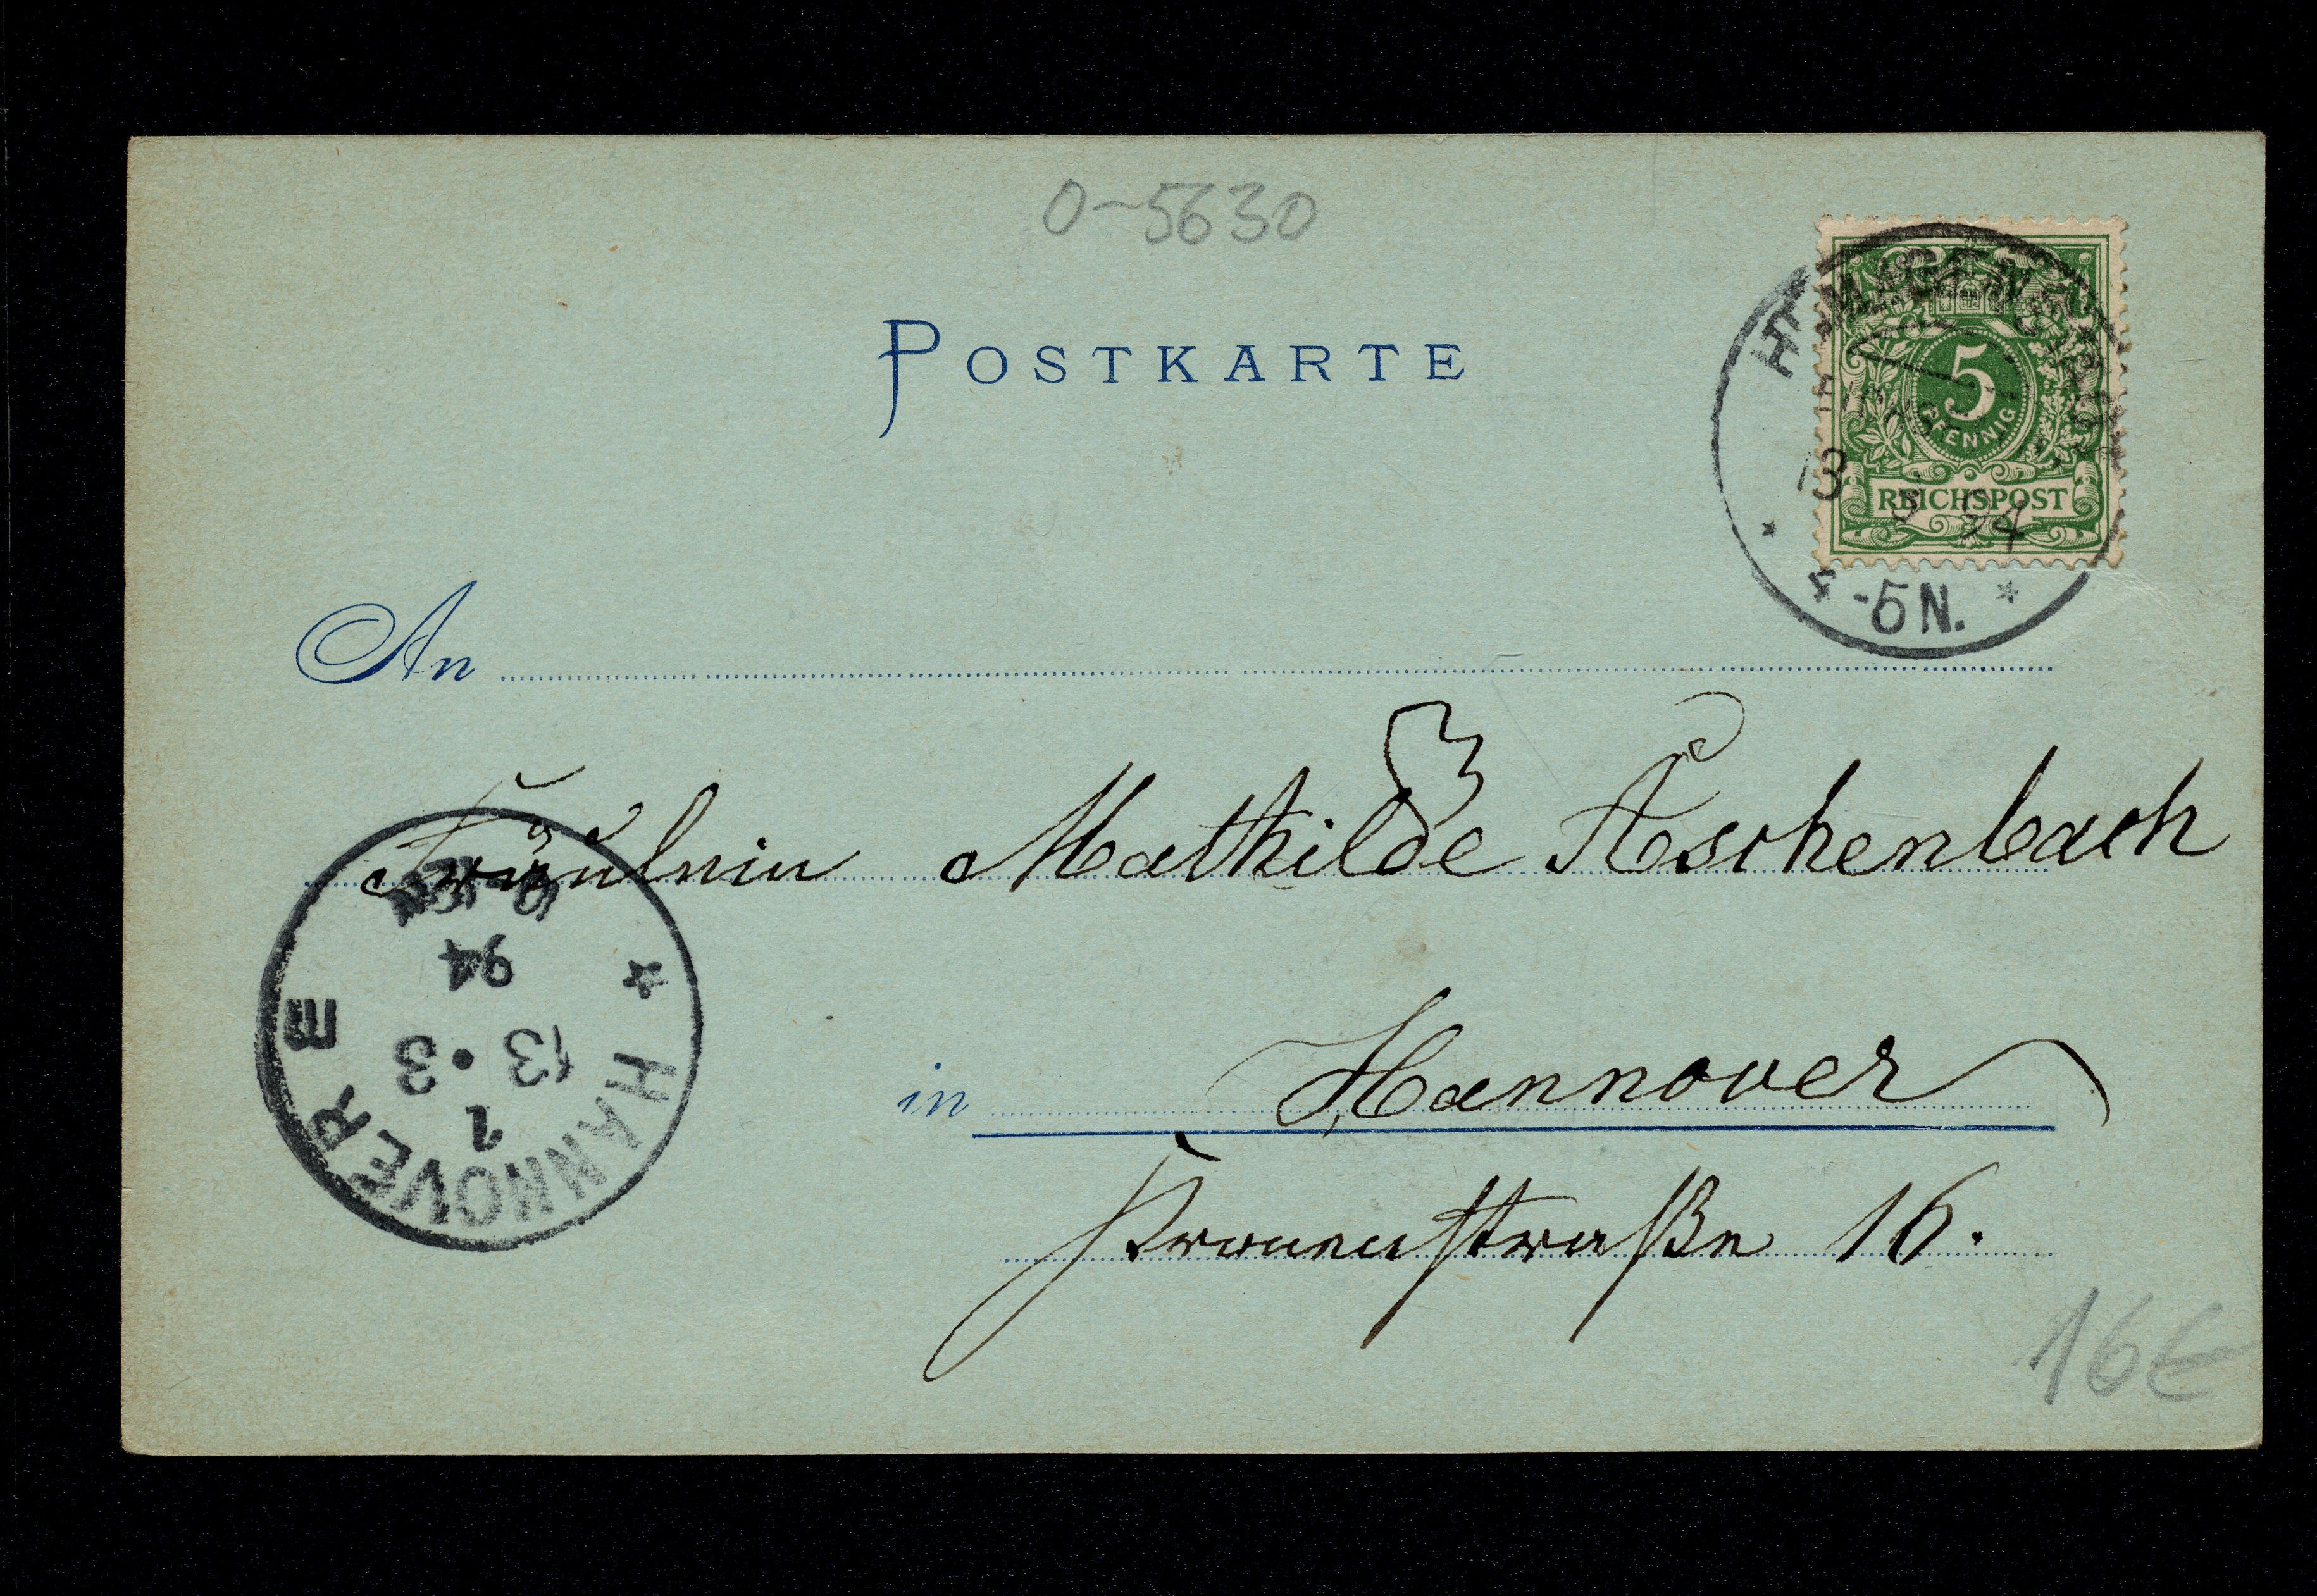 0-5630
POSTKARTE
5
PFENNIG
REICHSPOST
13 3 94
4-5N.
An
Fräulein Mathilde Aschenbach
94
13.3
1
* HANNOVER
in Hannover
Kronenstraße 16.
16€